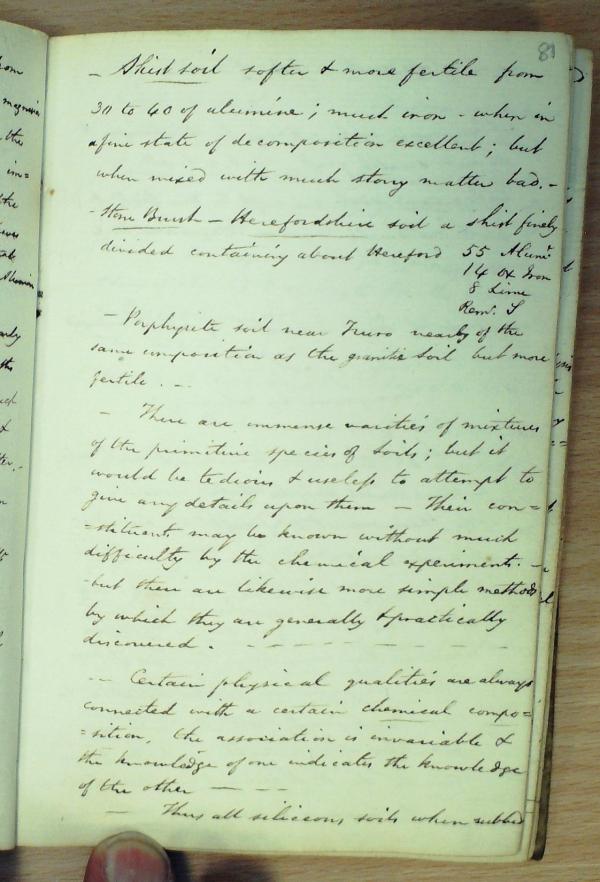 81
- Shist soil softer & more fertile from
30 to 40 of alumine; much iron - when in
a fine state of decomposition excellent; but
when mixed with much stony matter bad. -
- Stone Brash - Herefordshire soil a shist finely
divided containing about Hereford 55 Alumᵉ
14 Ox Iron
8 Lime
Remʳ S
- Porphyrite soil near Truro nearly of the
same composition as the granitic soil but more
fertile. -
- There are immense varieties of mixtures
of the primitive species of soils; but it
would be tedious & useless to attempt to
give any details upon them - Their con=
=stituents may be known without much
difficulty by the chemical experiments. -
- but there are likewise more simple methods
by which they are generally & practically
discovered. - - - - - - -
-- Certain physical qualities are always
connected with a certain chemical compo=
=sition, the association is invariable &
the knowledge of one indicates the knowledge
of the other - - -
- Thus all siliceous soils when rubbed
from
magnesia
the
im=
the